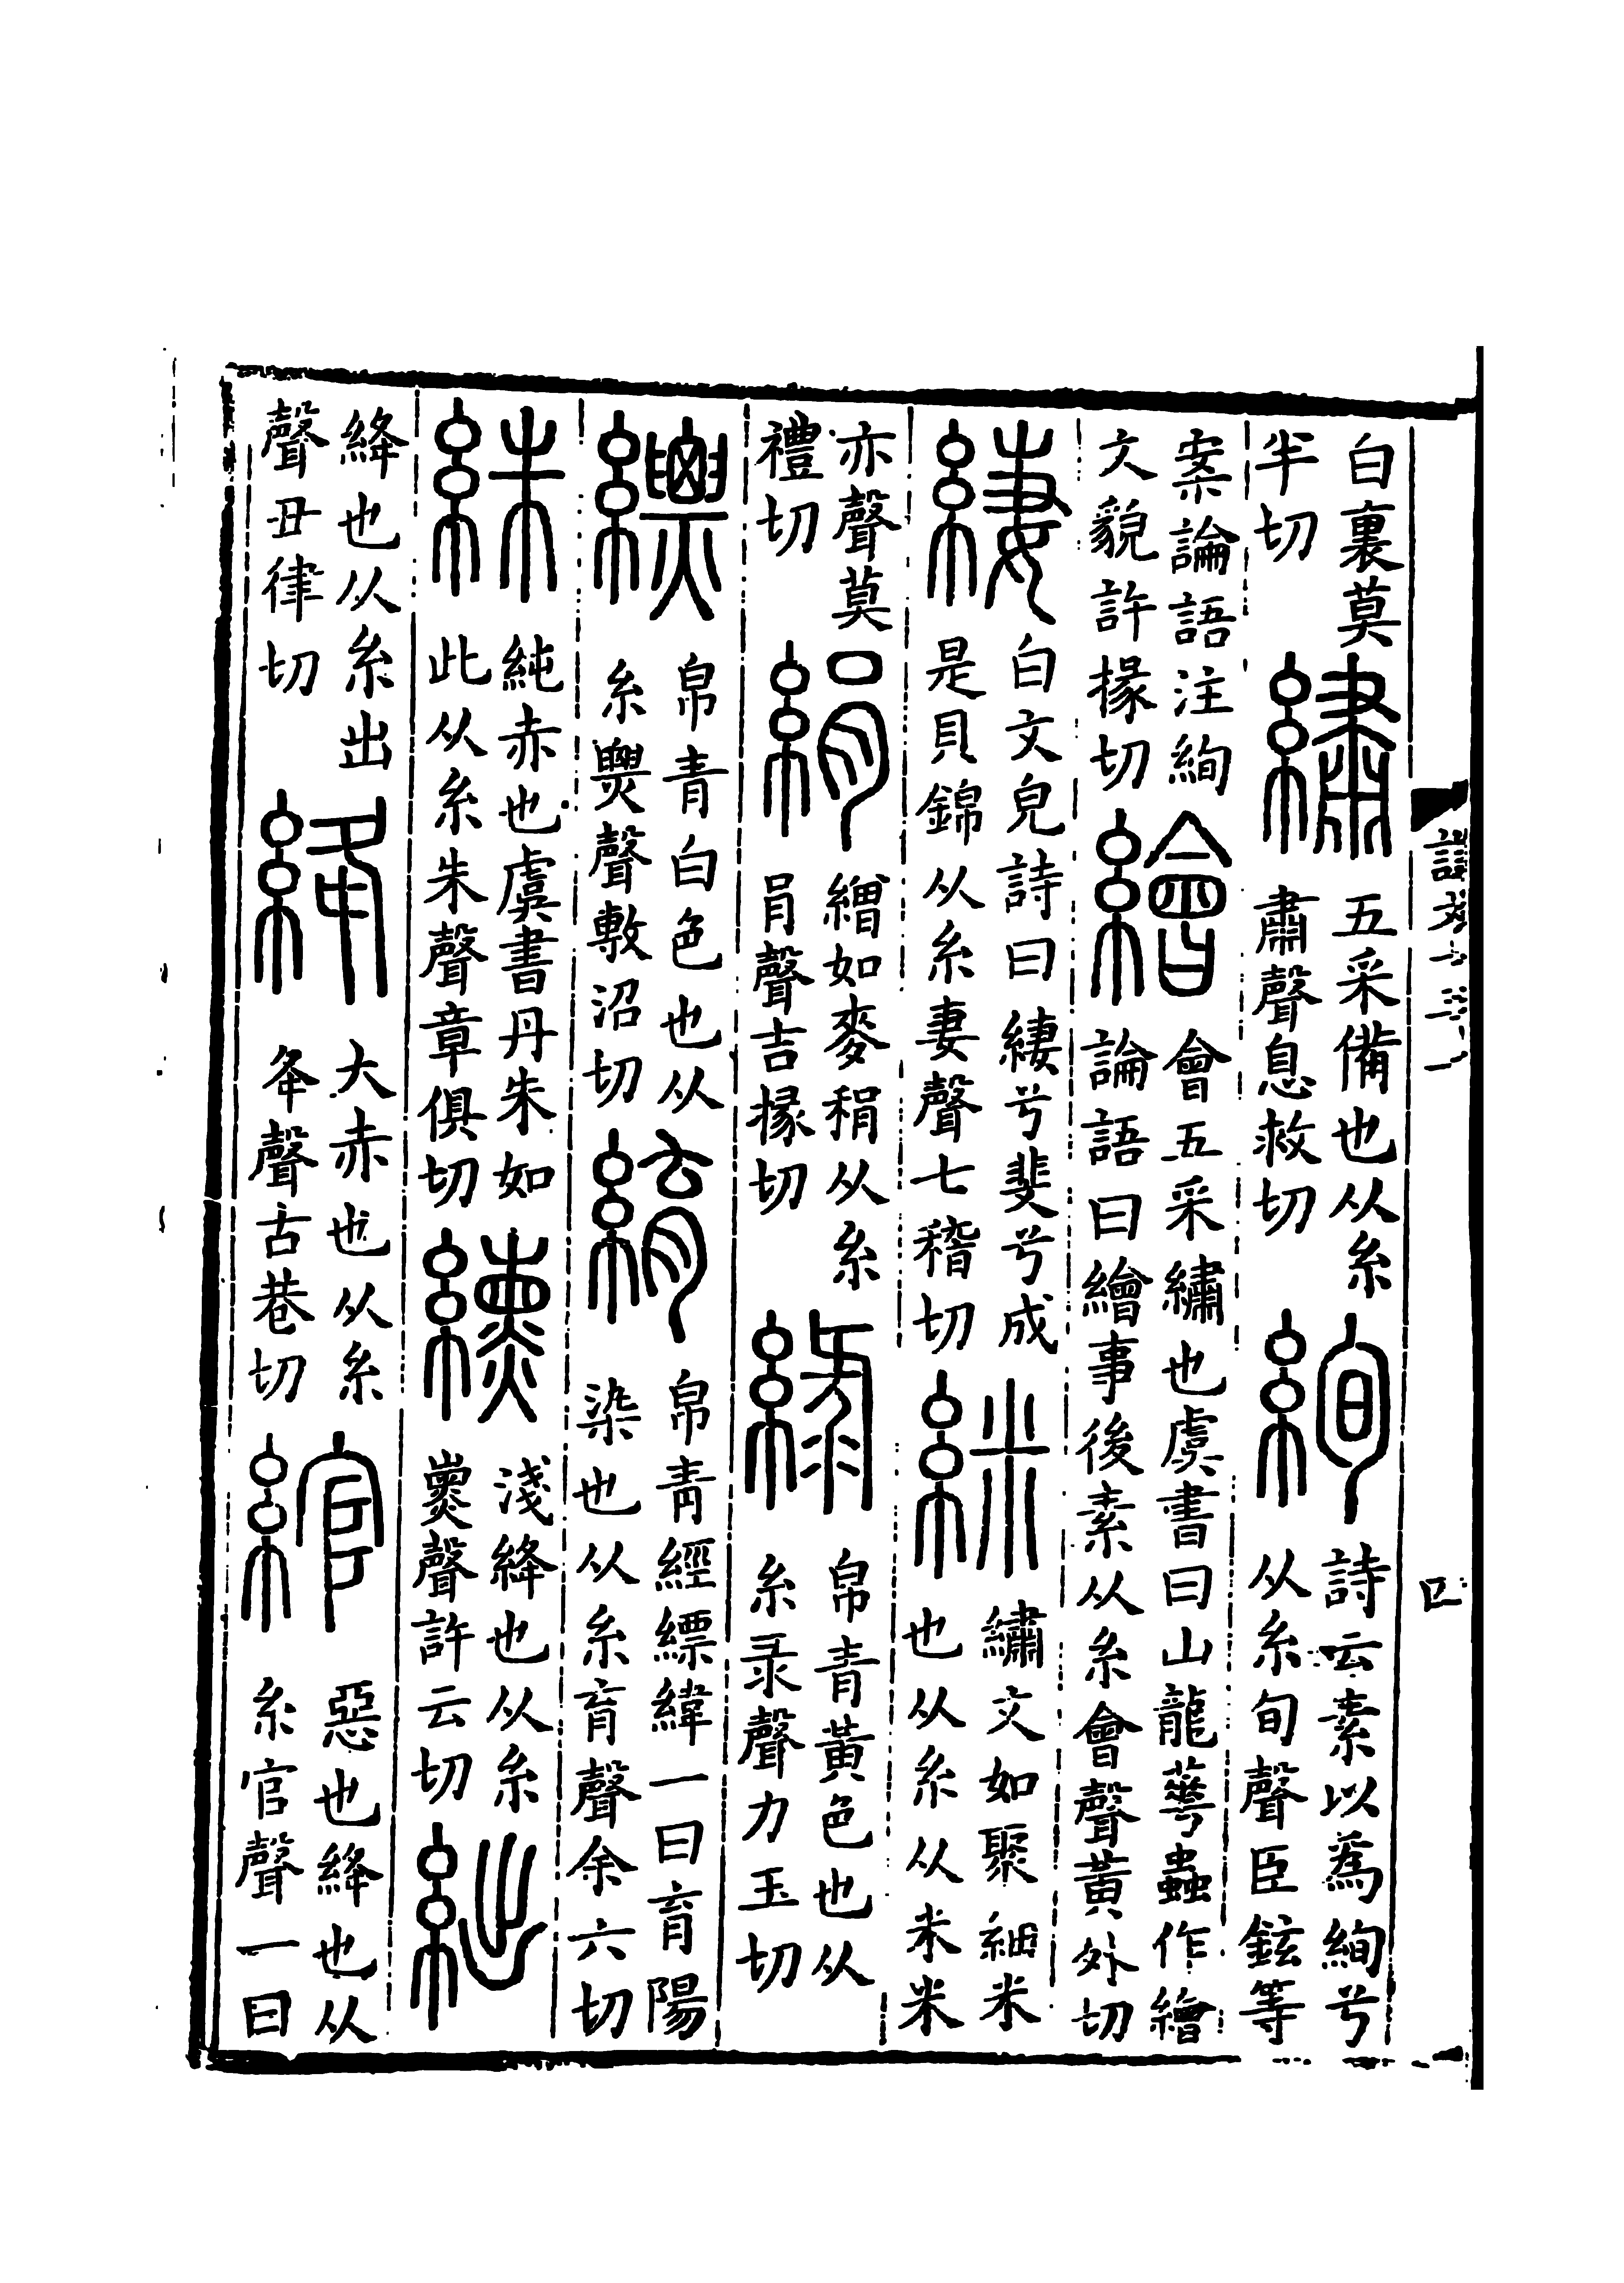 白裏莫半切 繡 五采備也从糸肅聲息救切 絢 詩云素以爲絢兮从糸旬聲臣鉉等
案論語注絢文貌許掾切 繪 會五采繡也虞書曰山龍華蟲作繪論語曰繪事後素从糸會聲黃外切
緀 白文皃詩曰緀兮斐兮成是貝錦从糸妻聲七稽切 絊 繡文如聚細米也从糸从米米
亦聲莫禮切 絹 繒如麥䅌从糸肙聲吉掾切 綠 帛青黃色也从糸彔聲力玉切
縹 帛青白色也从糸票聲敷沼切 綃 帛青經縹緯一曰育陽染也从糸育聲余六切
絑 純赤也虞書丹朱如此从糸朱聲章俱切 纁 淺絳也从糸熏聲許云切 絀
絳也从糸出聲丑律切 絳 大赤也从糸夅聲古巷切 綰 惡也絳也从糸官聲一曰